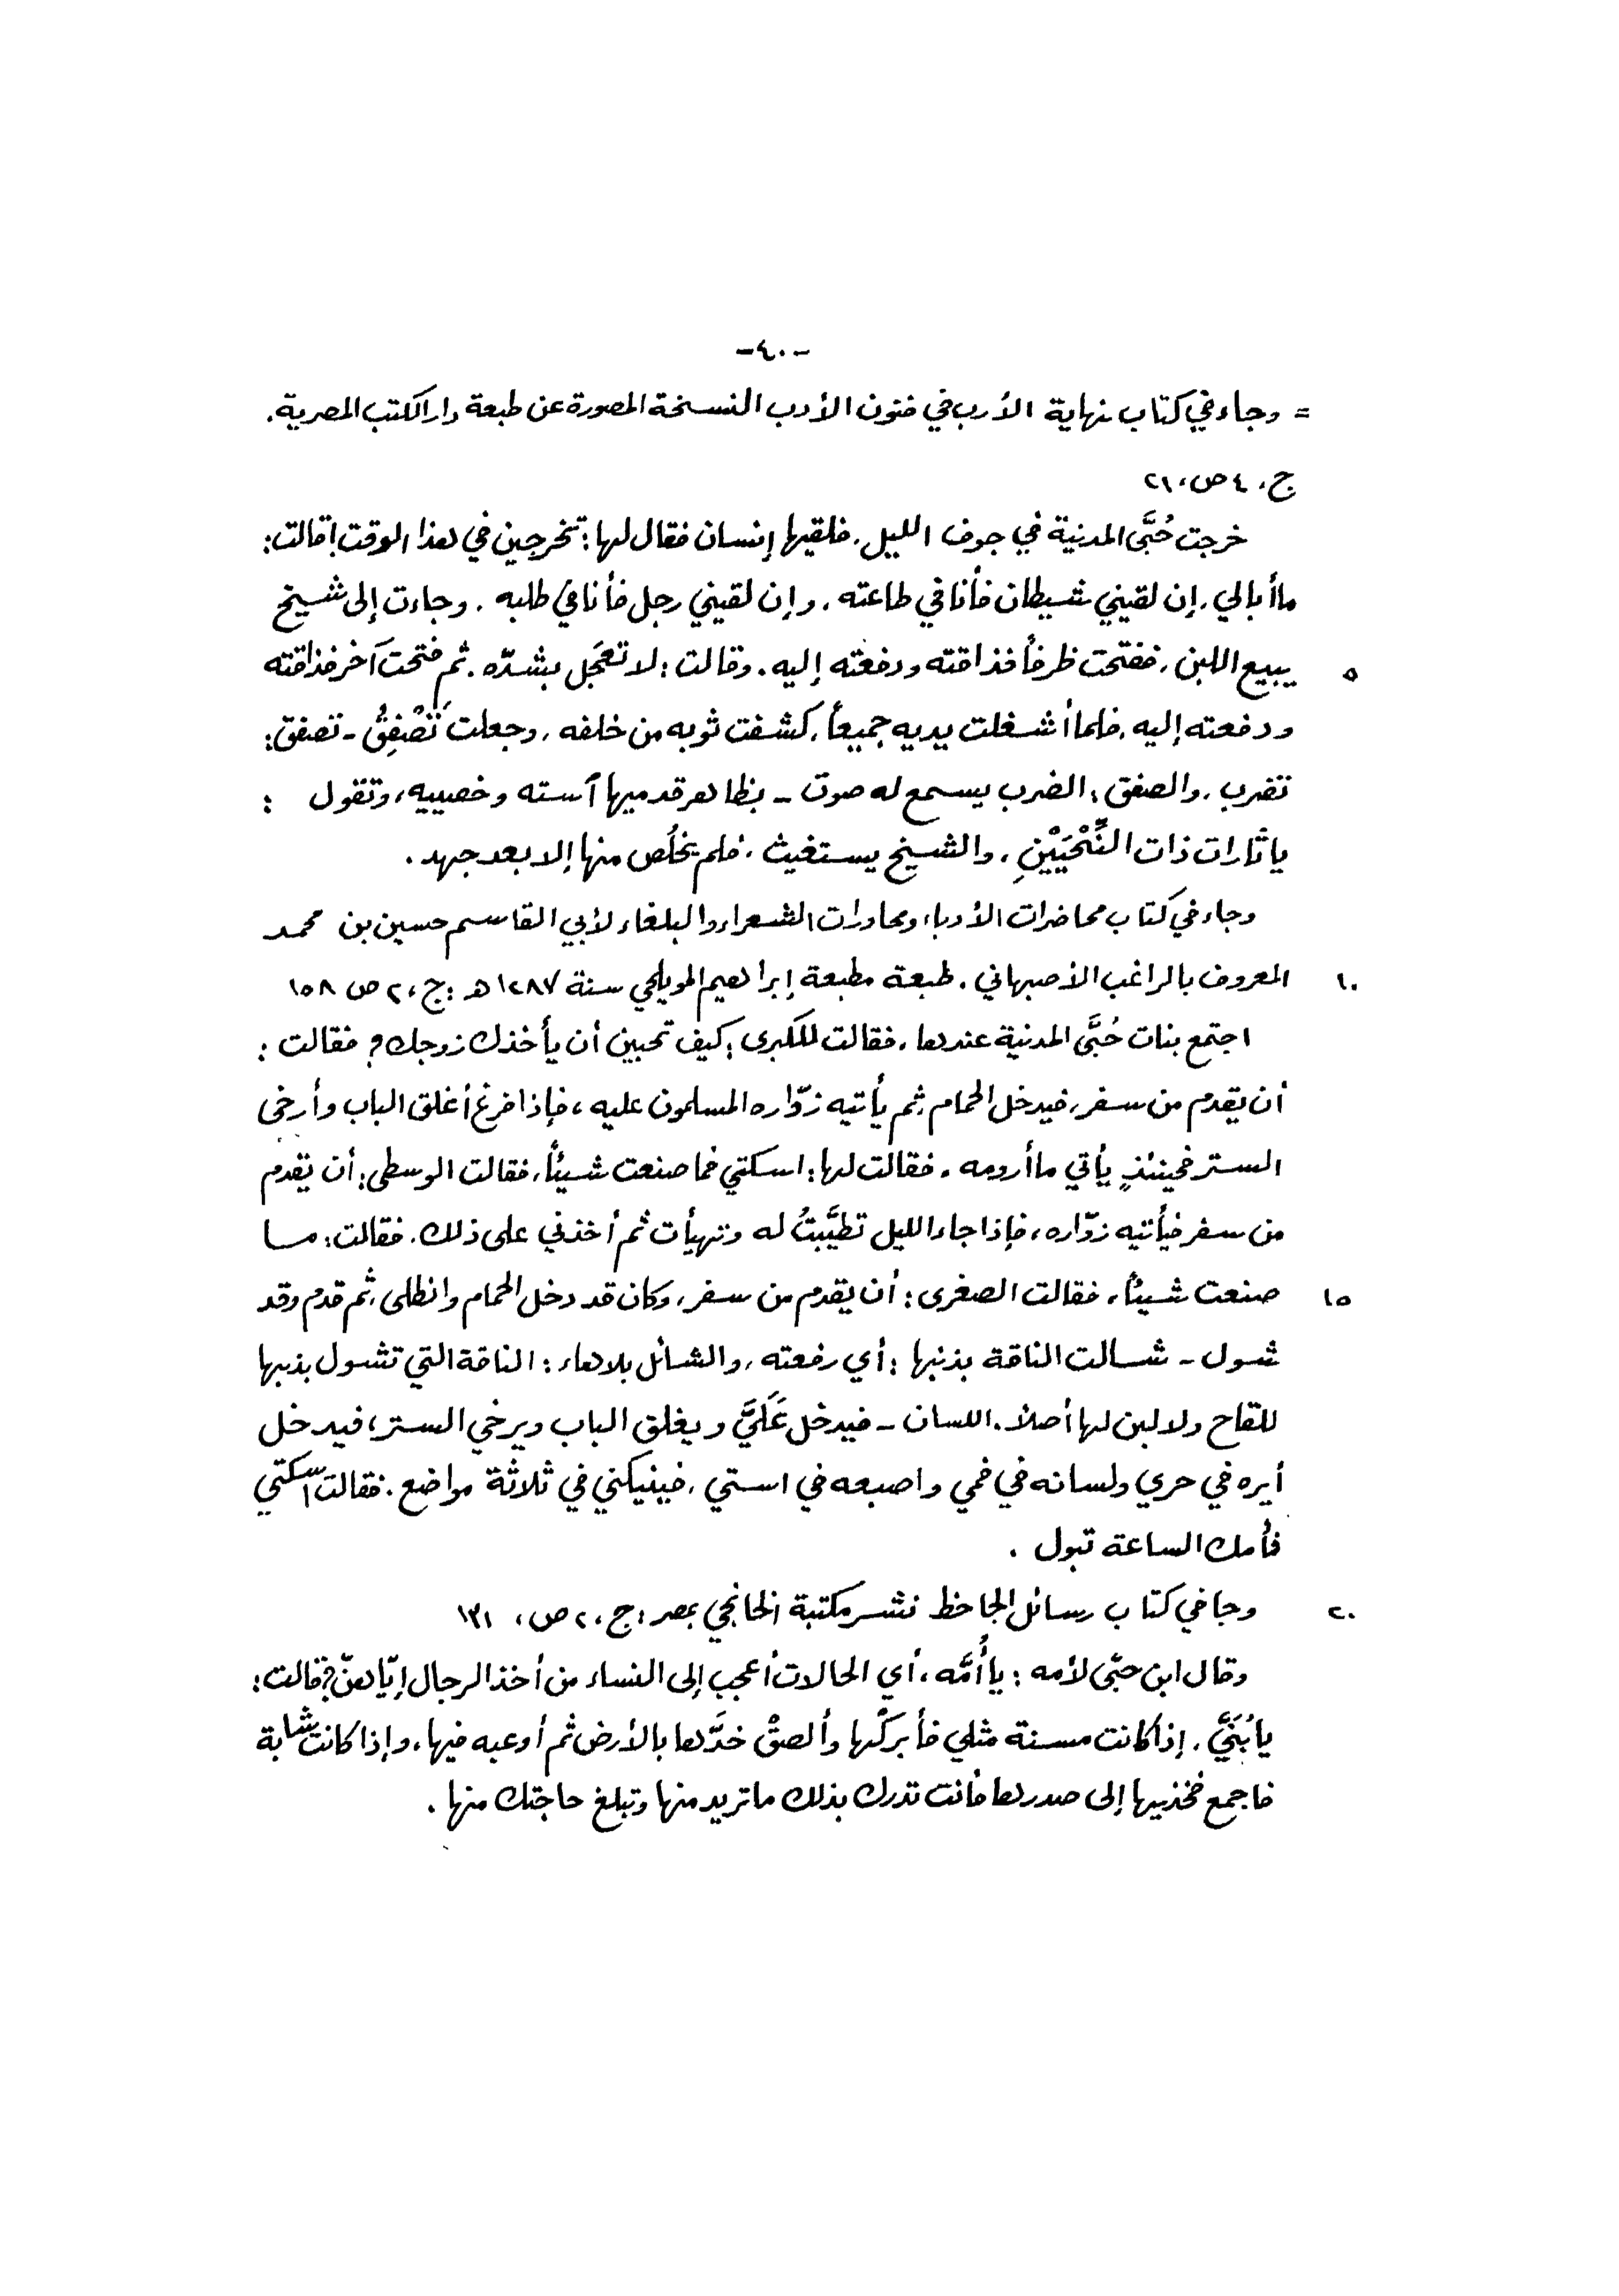 -٤٠-
= وجاء في كتاب نهاية الأرب في فنون الأدب النسخة المصورة عن طبعة دار الكتب المصرية.
ج، ٤ ص، ٢١
خرجت حُبَّى المدنية في جوف الليل، فلقيها إنسان فقال لها: تخرجين في هذا الوقت! قالت:
ما أبالي، إن لقيني شيطان فأنا في طاعته، وإن لقيني رجل فأنا في طلبه. وجاءت إلى شيخ
٥ يبيع اللبن، ففتحت ظرفاً فذاقته ودفعته إليه. وقالت: لا تعجَل بشدّه. ثم فتحت آخر فذاقته
ودفعته إليه، فلما أشغلت يديه جميعاً، كشفت ثوبه من خلفه، وجعلت تَصْفِقُ - تصفق:
تضرب، والصفق: الضرب يسمع له صوت - بظاهر قدميها آسته وخصييه، وتقول :
يا ثارات ذات النِّحْيَيْنِ، والشيخ يستغيث، فلم يخلُص منها إلا بعد جهد.
وجاء في كتاب محاضرات الأدباء ومحاورات الشعراء والبلغاء لأبي القاسم حسين بن محمد
١٠ المعروف بالراغب الأصبهاني. طبعة مطبعة إبراهيم المويلحي سنة ١٢٨٧ هـ : ج، ٢ ص ١٥٨
اجتمع بنات حُبَّى المدنية عندها، فقالت للكبرى: كيف تحبين أن يأخذك زوجك؟ فقالت :
أن يقدم من سفر، فيدخل الحمام ثم يأتيه زوّاره المسلمون عليه، فإذا فرغ أغلق الباب وأرخى
الستر فحينئذٍ يأتي ما أرومه. فقالت لها: اسكتي فما صنعت شيئاً، فقالت الوسطى: أن يقدم
من سفر فيأتيه زوّاره، فإذا جاء الليل تطيَّبتُ له وتهيأت ثم أخذني على ذلك. فقالت: ما
١٥ صنعت شيئاً، فقالت الصغرى: أن يقدم من سفر، وكان قد دخل الحمام وانطلى، ثم قدم وقد
شول - شالت الناقة بذنبها : أي رفعته، والشائل بلا هاء: الناقة التي تشول بذنبها
للقاح ولا لبن لها أصلاً. اللسان - فيدخل عَلَيَّ ويغلق الباب ويرخي الستر، فيدخل
أيره في حري ولسانه في فمي واصبعه في استي، فينيكني في ثلاثة مواضع. فقالت اسكتي
فأمك الساعة تبول .
٢٠ وجا في كتاب رسائل الجاحظ نشر مكتبة الخانجي بمصر: ج، ٢ ص، ١٣١
وقال ابن حبّى لأمه : يا أُمَّه، أي الحالات أعجب إلى النساء من أخذ الرجال إيّاهنّ؟ قالت:
يا بُنَيَّ، إذا كانت مسنة مثلي فأبركْها وألصقْ خدَّها بالأرض ثم أوعبه فيها، وإذا كانت شابة
فاجمع فخذيها إلى صدرها فأنت تدرك بذلك ما تريد منها وتبلغ حاجتك منها .